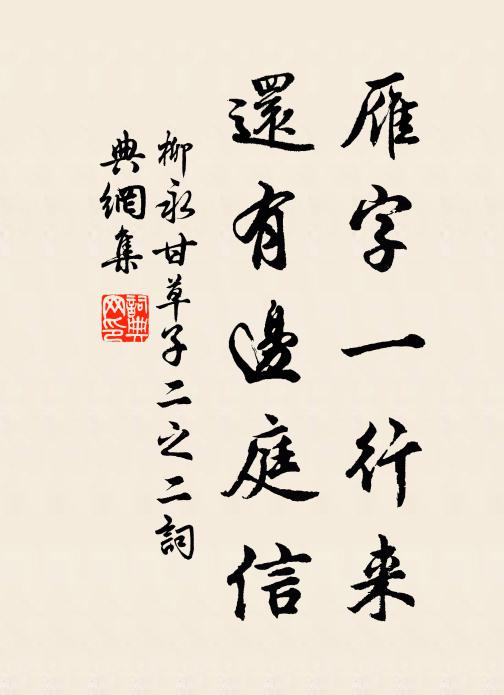 雁字一行来
還有邊庭信
柳永甘草子二之二詞
典網集
詞典网印